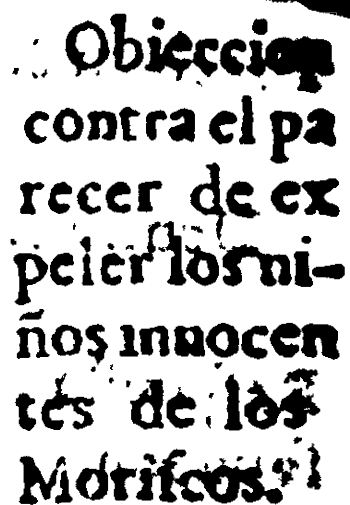 Obieccion
contra el pa
recer de ex
peler los ni-
ños innocen
tes de los
Moriſcos.